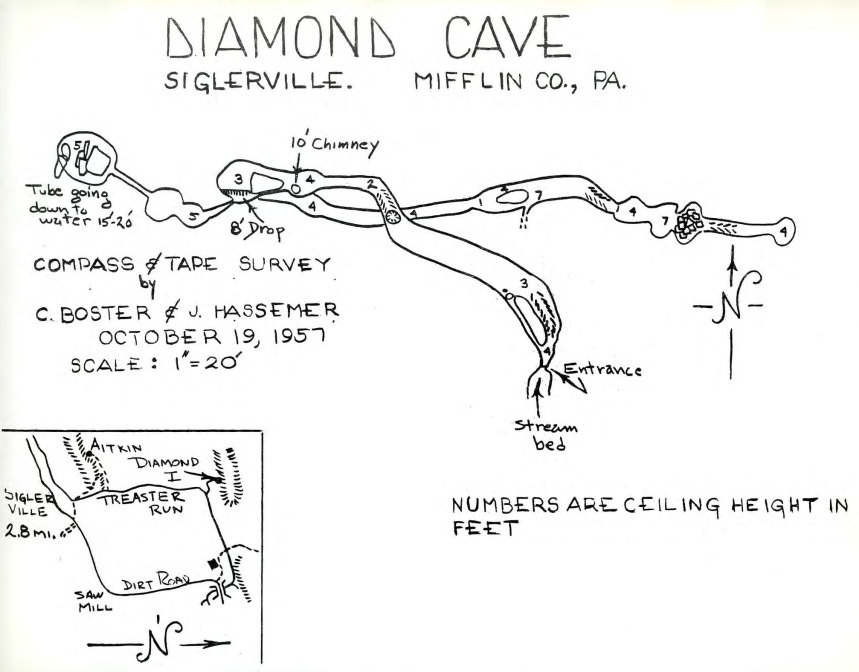 DIAMOND CAVE
SIGLERVILLE. MIFFLIN CO., PA.
10' Chimney
5
3
4
2
2
7
Tube going
down to
water 15'-20'
5
8' Drop
4
4
4
7
4
COMPASS & TAPE SURVEY
by
C. BOSTER & J. HASSEMER
OCTOBER 19, 1957
SCALE: 1"=20'
3
4
N
Entrance
Stream
bed
AITKIN
DIAMOND
I
SIGLER
VILLE
2.8 MI.
TREASTER
RUN
DIRT ROAD
SAW
MILL
N
NUMBERS ARE CEILING HEIGHT IN
FEET